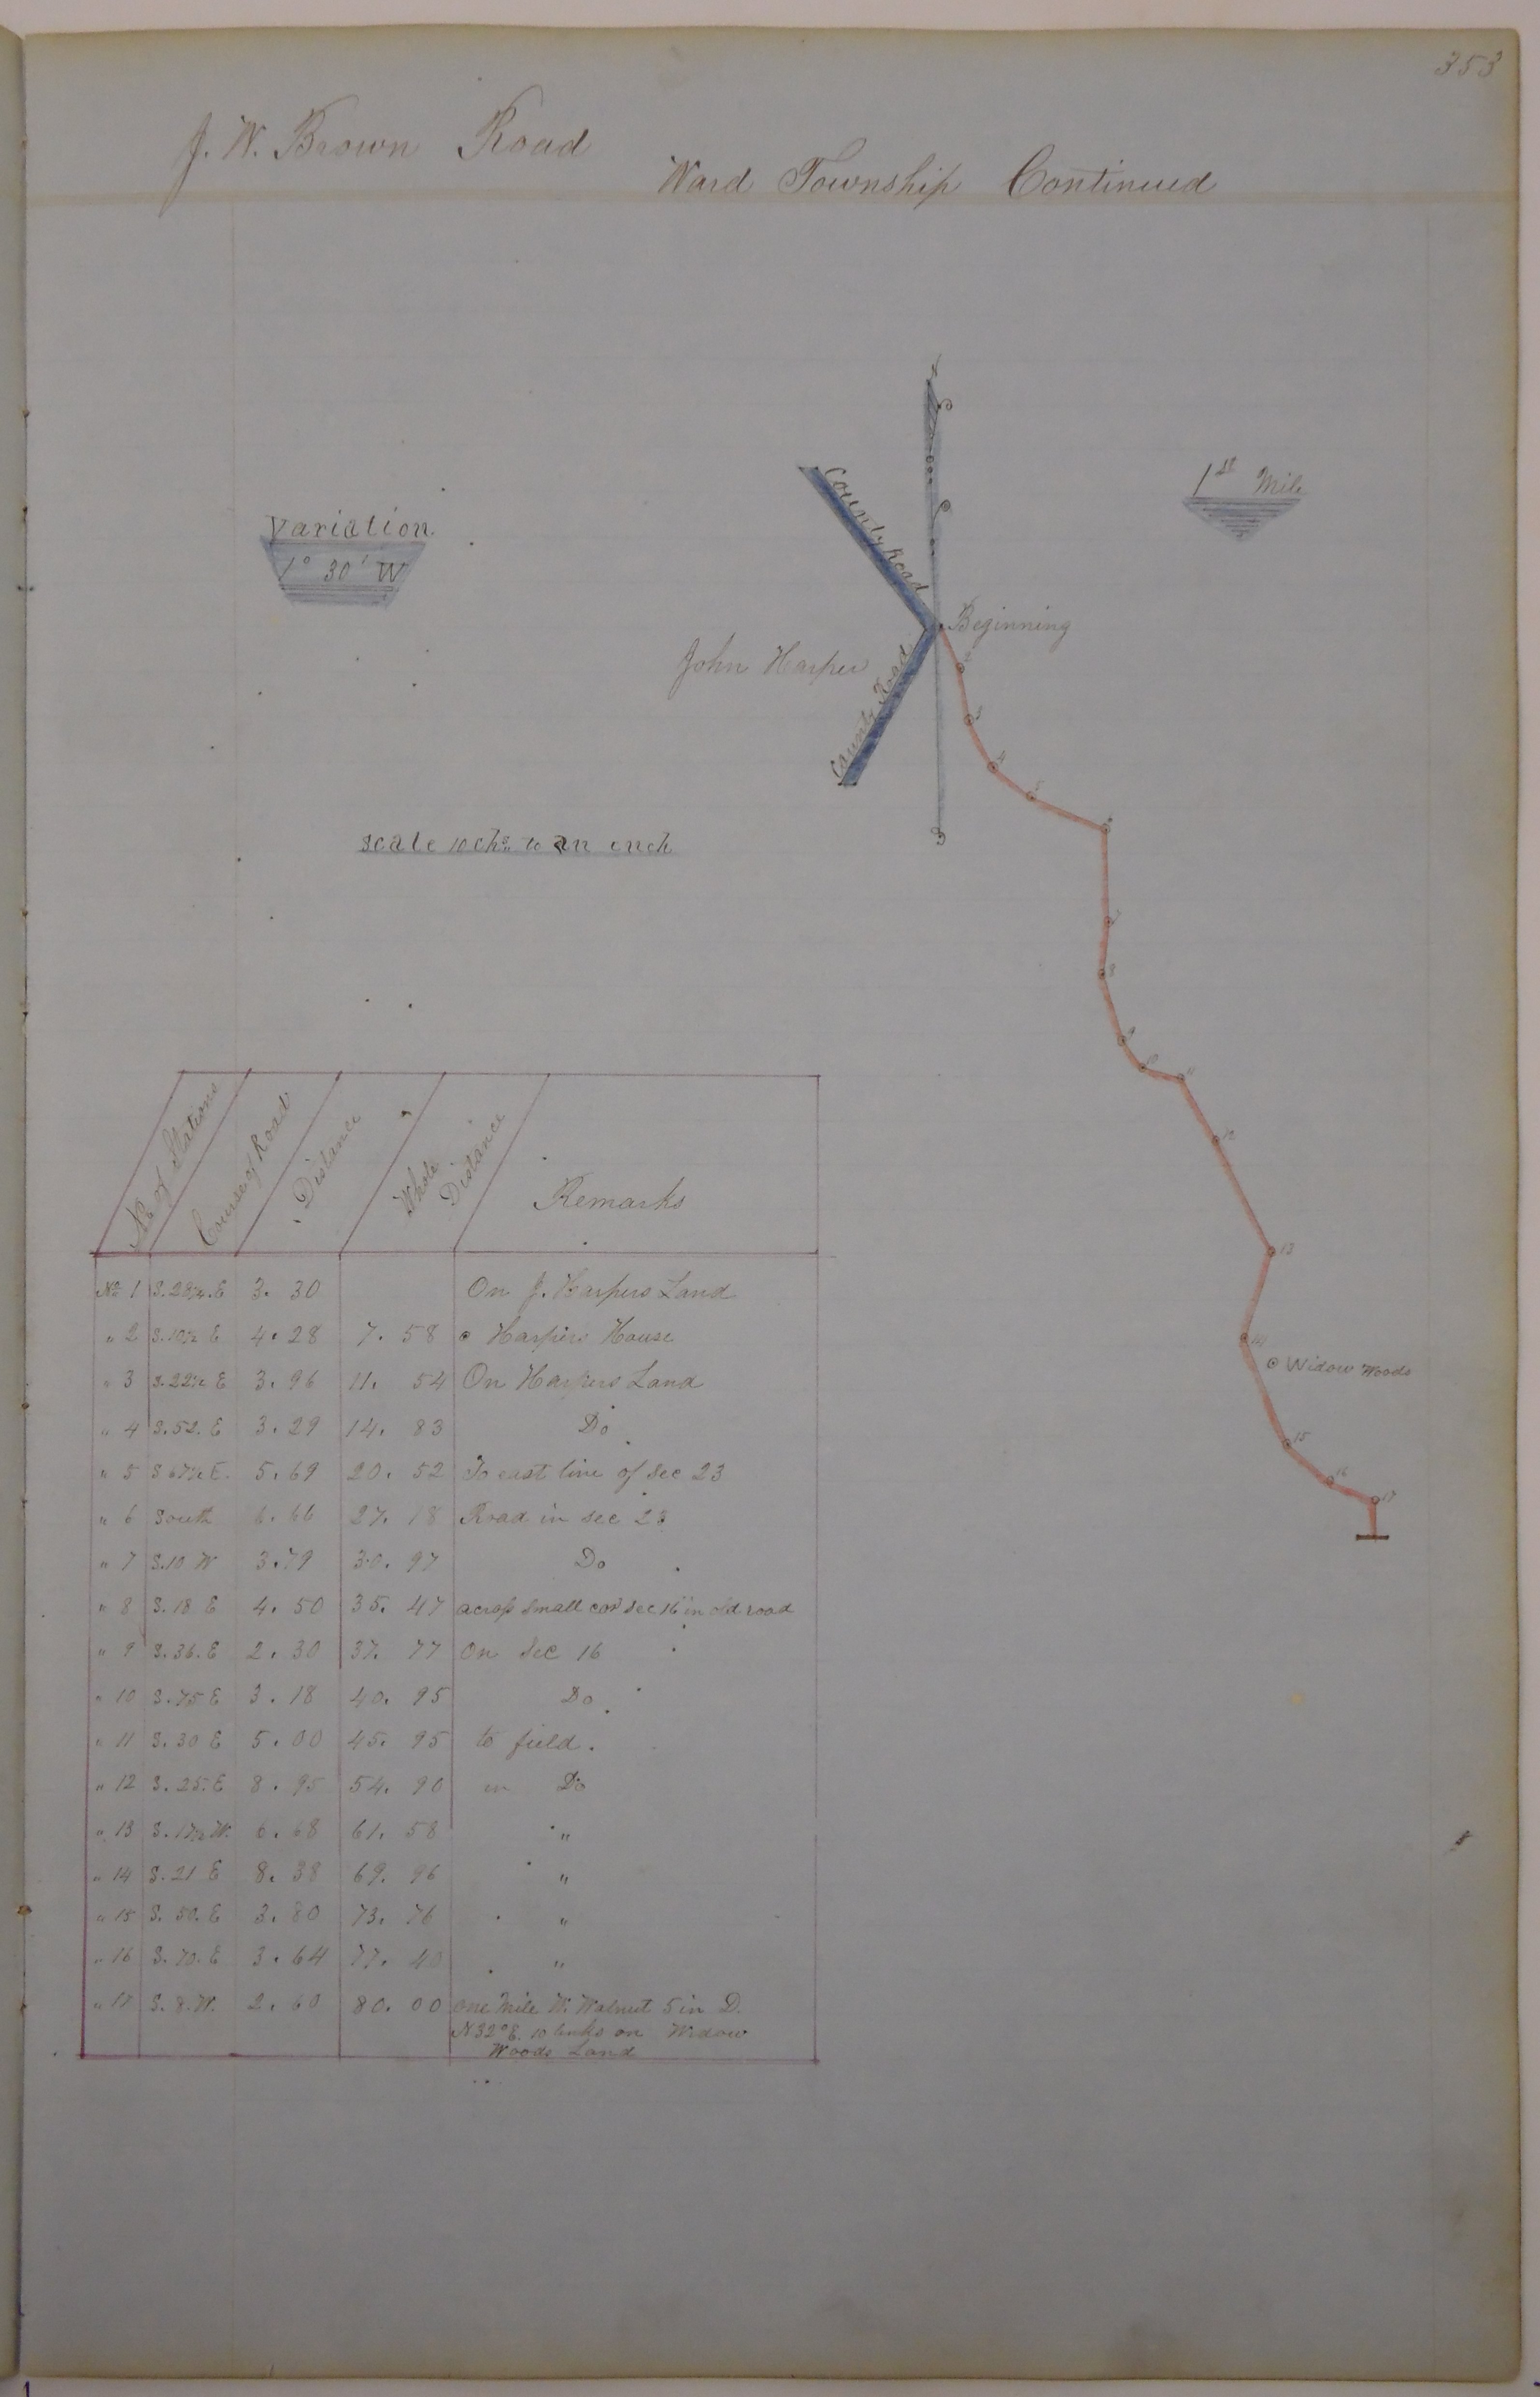 353
J. W. Brown Road
Ward Township Continued
1st Mile
Variation
1° 30' W
County Road
Beginning
John Harper
County Road
2
3
4
5
scale 10 chs. to an inch
8
9
10
11
12
13
14
Widow Woods
15
16
17
No of Stations Course of Road Distance Whole Distance Remarks
No 1 S. 28¼. E 3. 30 On J. Harpers Land
" 2 S. 10½ E 4. 28 7. 58 Harpers House
" 3 S. 22½ E 3. 96 11. 54 On Harpers Land
" 4 S. 52. E 3. 29 14. 83 Do
" 5 S 67½ E. 5. 69 20. 52 To east line of Sec 23
" 6 South 6. 66 27. 18 Road in sec 23
" 7 S. 10 W 3. 79 30. 97 Do
" 8 S. 18 E 4. 50 35. 47 across small cor Sec 16 in old road
" 9 S. 36. E 2. 30 37. 77 On Sec 16
" 10 S. 75 E 3. 18 40. 95 Do
" 11 S. 30 E 5. 00 45. 95 to field.
" 12 S. 25. E 8. 95 54. 90 in Do
" 13 S. 17½ W. 6. 68 61. 58 "
" 14 S. 21 E 8. 38 69. 96 "
" 15 S. 50. E 3. 80 73. 76 "
" 16 S. 70. E 3. 64 77. 40 "
" 17 S. 8. W. 2. 60 80. 00 one Mile W. Walnut 5 in D.
N 32° E. 10 links on Widow
Woods Land